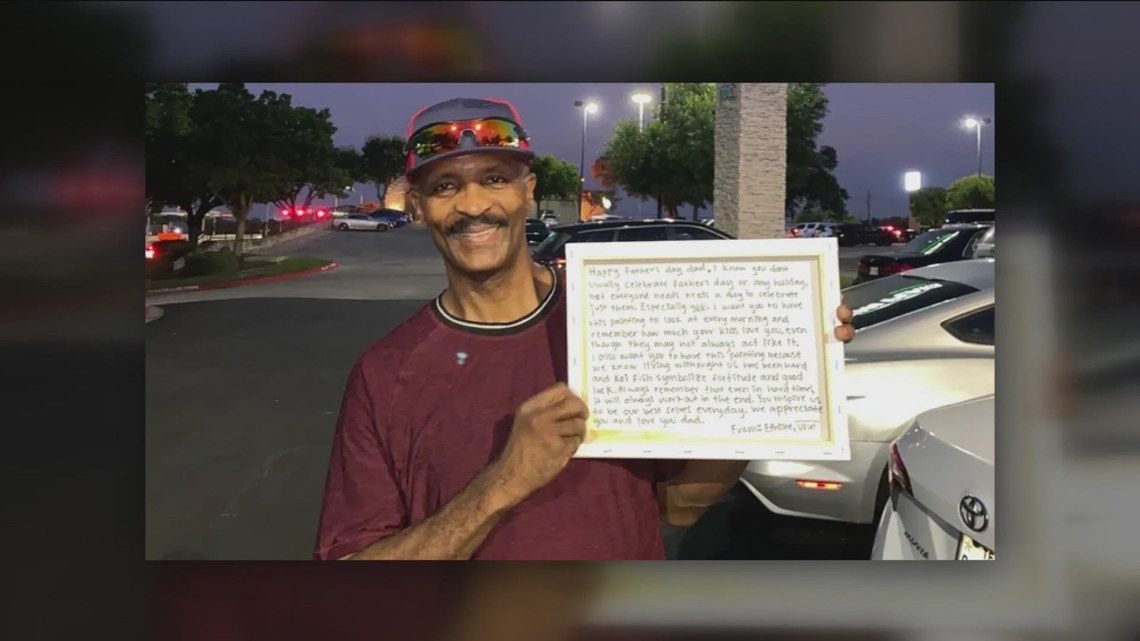 Happy fathers day dad, I know you dont
usually celebrate fathers day or any holiday,
not everyone needs needs a day to celebrate
just them. Especially you. I want you to have
this painting to look at every morning and
remember how much your kids love you, even
though they may not always act like it.
I also want you to have this painting because
we know living withought us has been hard
and Koi fish symbolize fortitude and good
luck. Always remember that even in hard times,
will always work out in the end. You inspire us
to be our best selves everyday. We appreciate
you and love you dad.
From: